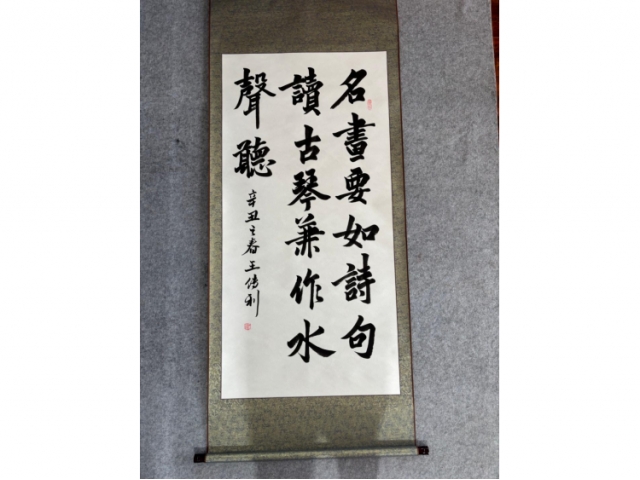 名畫要如詩句
讀古琴兼作水
聲聽
辛丑之春王傳刚